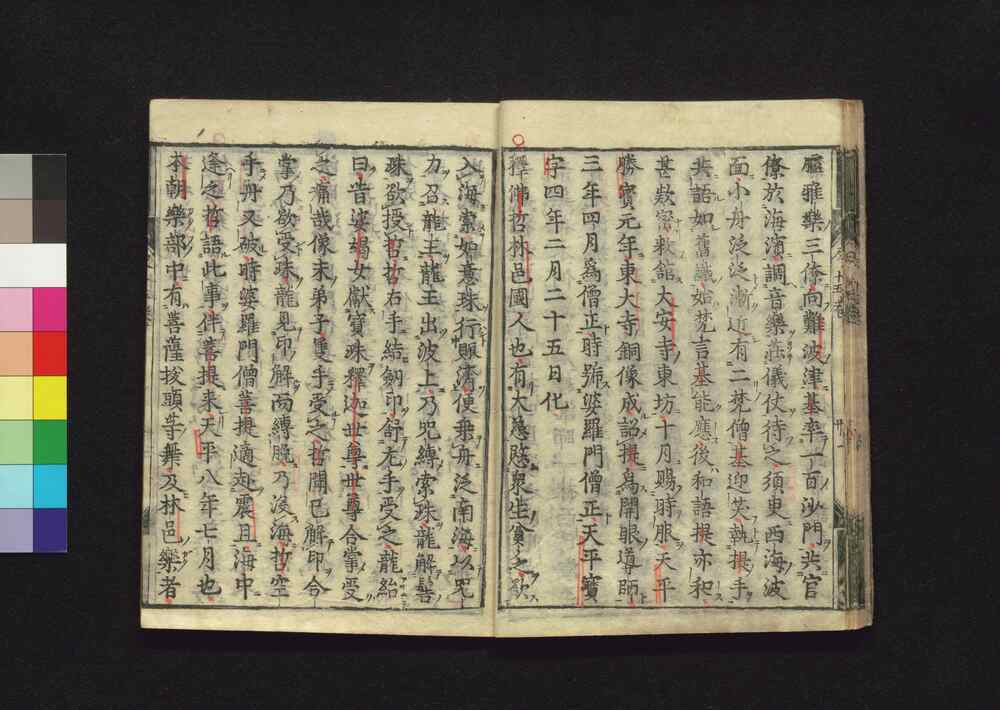 雅樂三僚向難波津基率一百沙門共官
僚於海濱調音樂莊儀仗待之須臾西海波
面小舟泛泛漸近有二梵僧基迎笑執提手
共語如舊識如梵言基能應後和語提亦和
甚歎密敕館大安寺東坊十月賜時服天平
勝寶元年東大寺銅像成詔提爲開眼導師
三年四月爲僧正時號婆羅門僧正天平寶
字四年二月二十五日化
釋佛哲林邑國人也有大慈愍衆生貧乏欲
入海索如意珠行賑濟便乘舟泛南海以咒
力召龍王龍王出波上乃咒縛索珠龍解髻
珠欲授哲哲右手結劒印舒左手受之龍紿
曰昔婆竭女獻寶珠釋迦世尊世尊合掌受
之痛哉像末弟子隻手受之哲聞已解印合
掌乃欲受珠龍見印解而縛脫乃沒海哲空
手舟又破時婆羅門僧菩提適赴震旦海中
逢之哲語此事伴菩提來天平八年七月也
本朝樂部中有菩薩拔頭等舞及林邑樂者